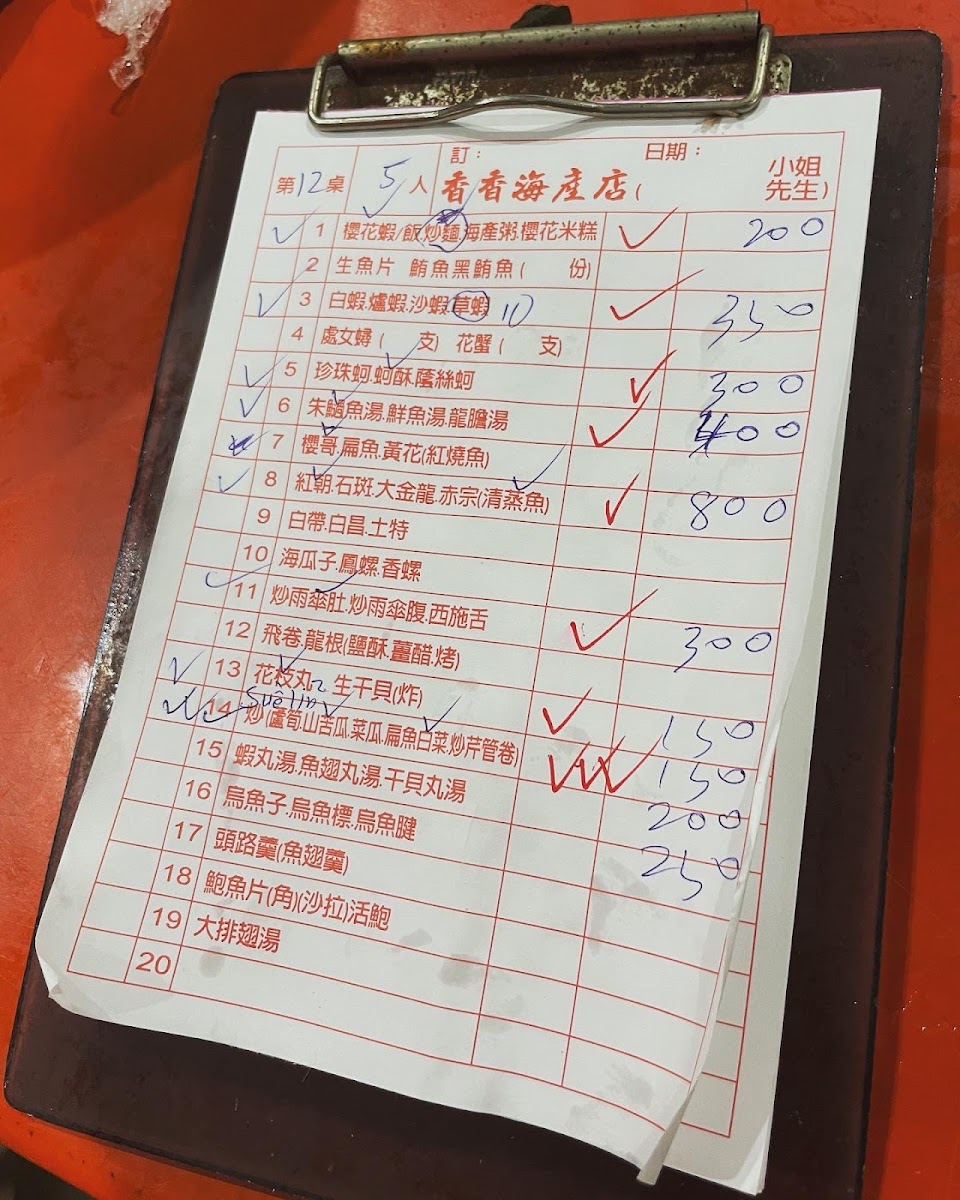 訂： 日期：
第12桌 5人 香香海產店( 小姐 先生)
1 櫻花蝦/飯.炒麵.海產粥.櫻花米糕 200
2 生魚片 鮪魚黑鮪魚( 份)
3 白蝦.爐蝦.沙蝦.草蝦 10 350
4 處女蟳( 支) 花蟹( 支)
5 珍珠蚵.蚵酥.蔭絲蚵 300
6 朱鯔魚湯.鮮魚湯.龍膽湯 400
7 櫻哥.扁魚.黃花(紅燒魚)
8 紅朝.石斑.大金龍.赤宗(清蒸魚) 800
9 白帶.白昌.土特
10 海瓜子.鳳螺.香螺
11 炒雨傘肚.炒雨傘腹.西施舌 300
12 飛卷.龍根(鹽酥.薑醋.烤)
13 花枝丸 生干貝(炸) 150
14 炒(蘆筍.山苦瓜.菜瓜.扁魚白菜.炒芹管卷) 150
15 蝦丸湯.魚翅丸湯.干貝丸湯 200
16 烏魚子.烏魚標.烏魚腱 250
17 頭路羹(魚翅羹)
18 鮑魚片(角)(沙拉)活鮑
19 大排翅湯
20